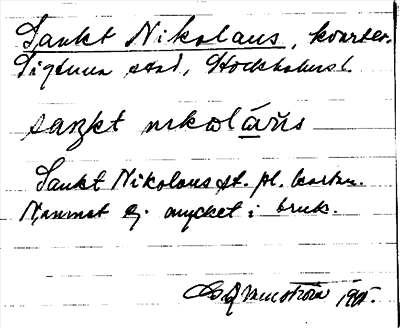 Sankt Nikolaus, kvarter.
Sigtuna stad, Stockholmsl.
saŋkt nıkωlāŭs
Sankt Nikolaus st. pl. kartan.
Namnet ej mycket i bruk.